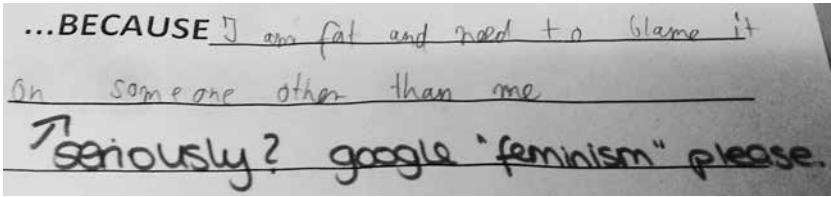 ...BECAUSE I am fat and need to blame it
on someone other than me
seriously? google "feminism" please.